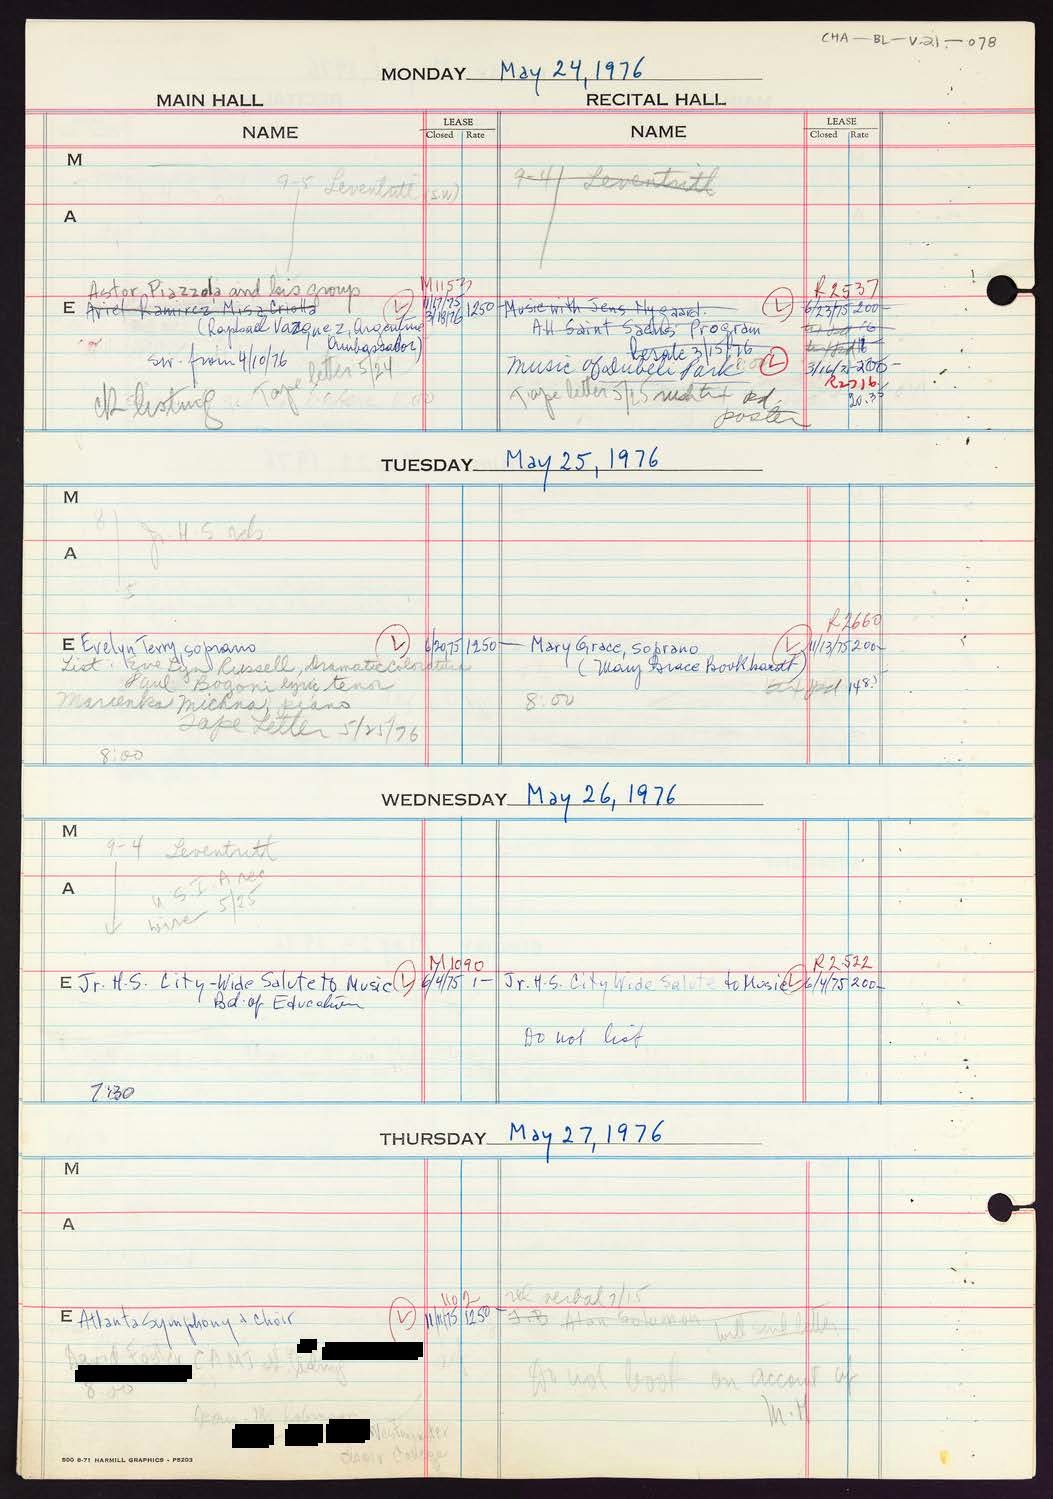 CHA-BL-V.21-078
MONDAY May 24, 1976
MAIN HALL RECITAL HALL
NAME LEASE Closed Rate NAME LEASE Closed Rate
M
9-5 Leventritt (S.W) 9-4 Leventritt
A
Astor Piazzola and his group M1157 R2537
E Ariel Ramirez Misa Criolla L 11/17/75 1250 Music with Jens Nygaard. L 6/23/75 200-
3/18/76
(Raphael Vazquez, Argentine All Saint Saens Program
Ambassador) 3/15/76
sw. from 4/10/76 Music of Park L 200-
ck listing Tape letter 5/24 Tape letter 5/25 pd. R2716
poster 20.35
TUESDAY May 25, 1976
M
8 Jr. H.S
A
5
R2660
E Evelyn Terry, soprano L 6/20/75 1250- Mary Grace, soprano L 11/13/75 200-
List: Evelyn Russell, dramatic coloratura (Mary Grace Bookhardt)
Paul Bogoni lyric tenor pd 148.
Marienka Michna, piano 8:00
Tape Letter 5/25/76
8:00
WEDNESDAY May 26, 1976
M
9-4 Leventritt
A
U.S.I.A rec
wire 5/25
M1090 R2522
E Jr. H.S. City-Wide Salute to Music L 6/4/75 1- Jr. H.S. City Wide Salute to Music L 6/4/75 200-
Bd. of Education
Do not list
7:30
THURSDAY May 27, 1976
M
A
1102 verbal 7/15
E Atlanta Symphony & Choir L 11/11/75 1250- Alan Solomon will send letter
David Foster CAMI
8:00 Do not book on account of
M.H
Westminster
Choir College
500 6-71 HARMILL GRAPHICS - P5203